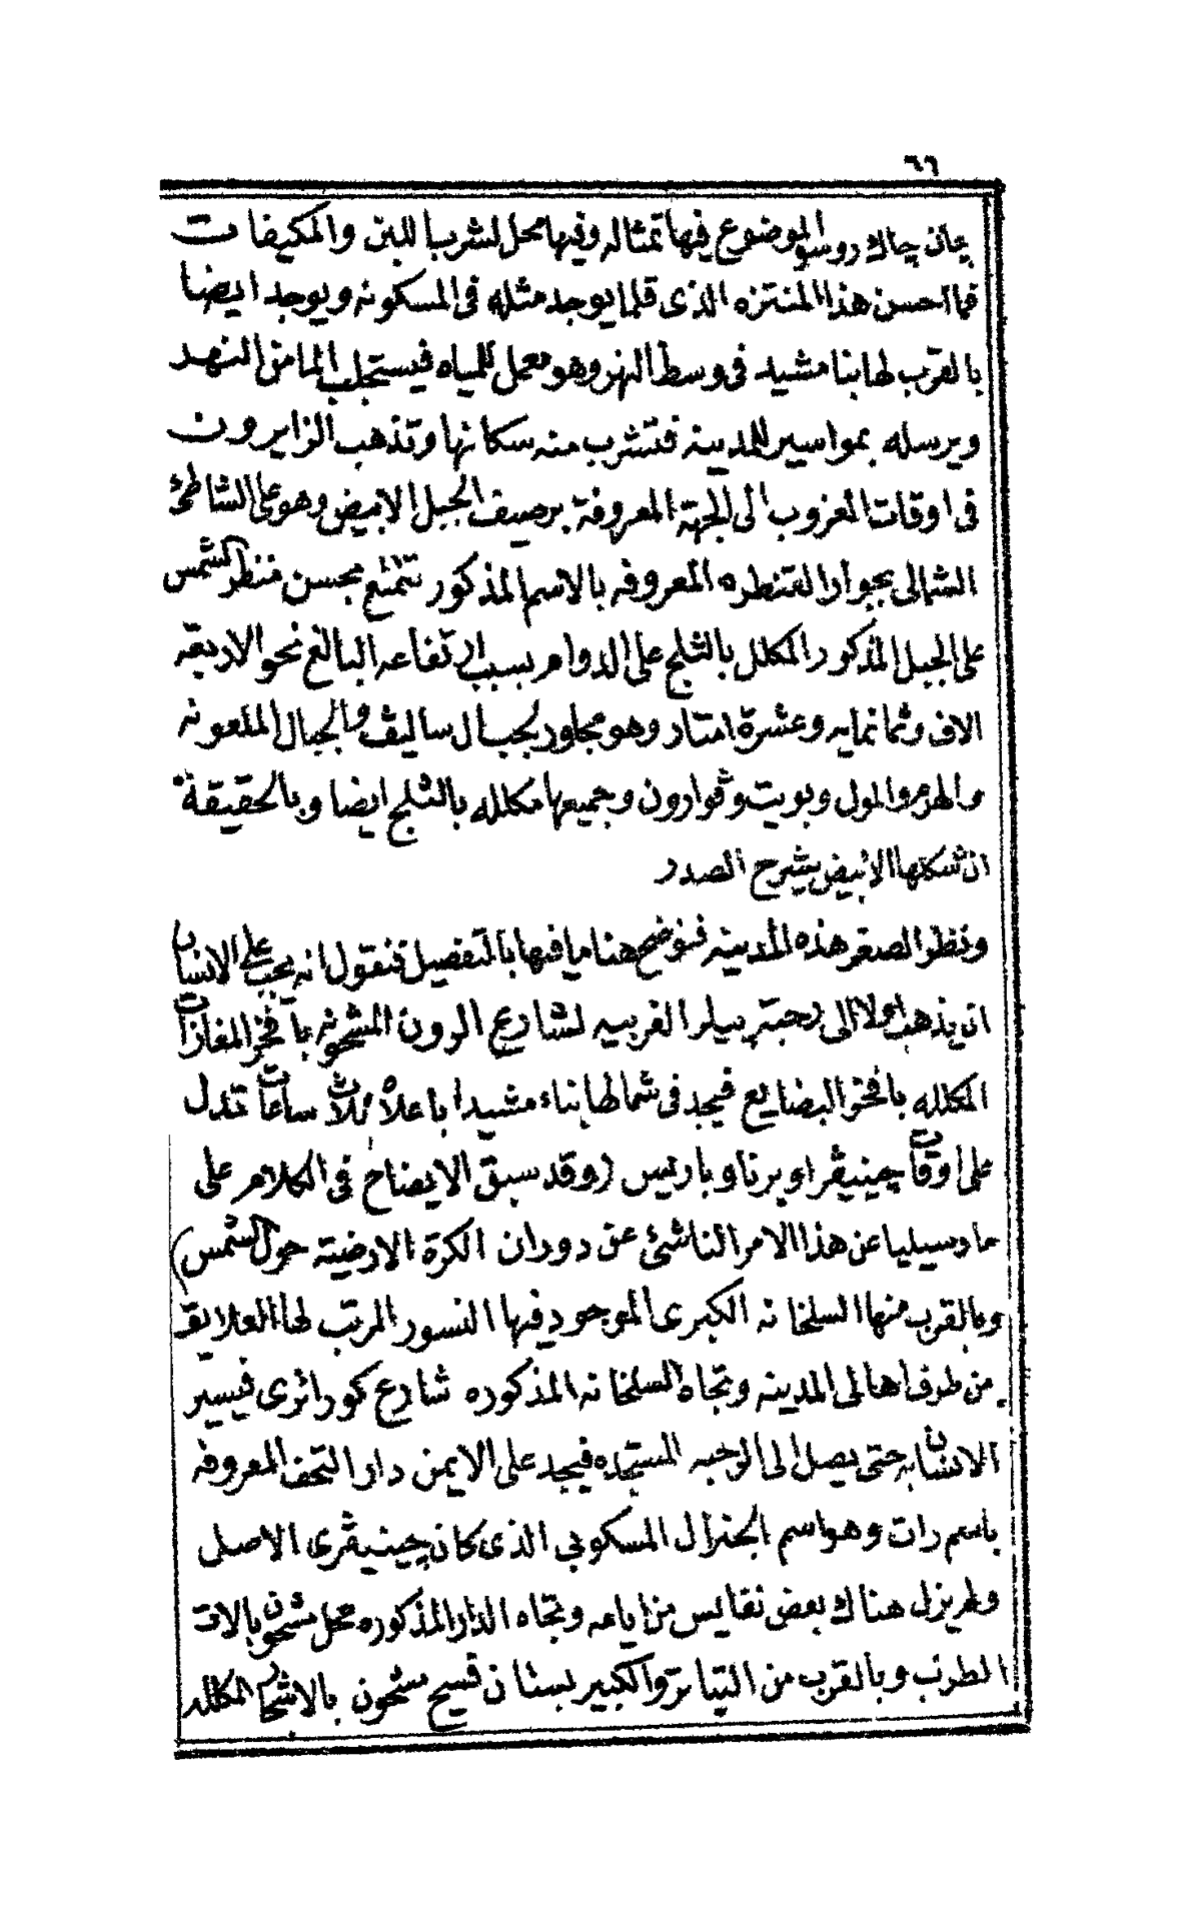 ٦٦
چان چاك روسو الموضوع فيها تمثاله وفيها محل لشرب اللبن والمكيفات
فما احسن هذا المنتزه الذى قلما يوجد مثله فى المسكونه ويوجد ايضا
بالقرب لها بنا مشيد فى وسط النهر وهو معمل للمياه فيستجلب الما من النهر
ويرسله بمواسير للمدينه فتشرب منه سكانها وتذهب الزايرون
فى اوقات الغروب الى الجهة المعروفة برصيف الجبل الابيض وهو على الشاطئ
الشمالى بجوار القنطره المعروفه بالاسم المذكور تتمتع بحسن منظر الشمس
على الجبل المذكور المكلل بالثلج على الدوام بسبب ارتفاعه البالغ نحو الاربعة
الاف وثمانمايه وعشرة امتار وهو مجاور لجبال ساليڤ والجبال الملعونه
والهرم والمول وبويت وڤوارون وجميعها مكلله بالثلج ايضا وبالحقيقة
ان شكلها الابيض يشرح الصدر
ونظرا لصغر هذه المدينه فنوضح هنا ما فيها بالتفصيل فنقول انه يجب على الانسان
ان يذهب اولا الى رحبة بيلر الغربيه لشارع الرون المشحونه بأفخر المغازات
المكلله بافخر البضايع فيجد فى شمالها بناء مشيدا باعلاه ثلاث ساعات تدل
على اوقات چينيڤرا وبرنا وباريس (وقد سبق الايضاح فى الكلام على
مارسيليا عن هذا الامر الناشئ عن دوران الكرة الارضية حول الشمس)
وبالقرب منها السلخانه الكبرى الموجود فيها النسور المرتب لها العلايق
من طرف اهالى المدينه وتجاه السلخانه المذكوره شارع كوراترى فيسير
الانسان به حتى يصل الى الرحبه المستجده فيجد على الايمن دار التحف المعروفه
باسم رات وهو اسم الجنرال المسكوبي الذى كان چينيڤرى الاصل
ولم يزل هناك بعض نفايس من ايامه وتجاه الدار المذكوره محل مشحون بالات
الطرب وبالقرب من التياترو الكبير بستان فسيح مشحون بالاشجار المكلله